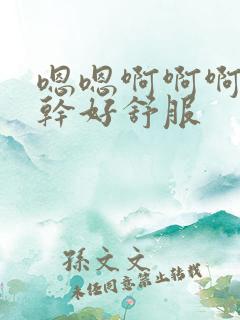 嗯嗯啊啊啊
幹好舒服
孫文文
未经同意禁止转载